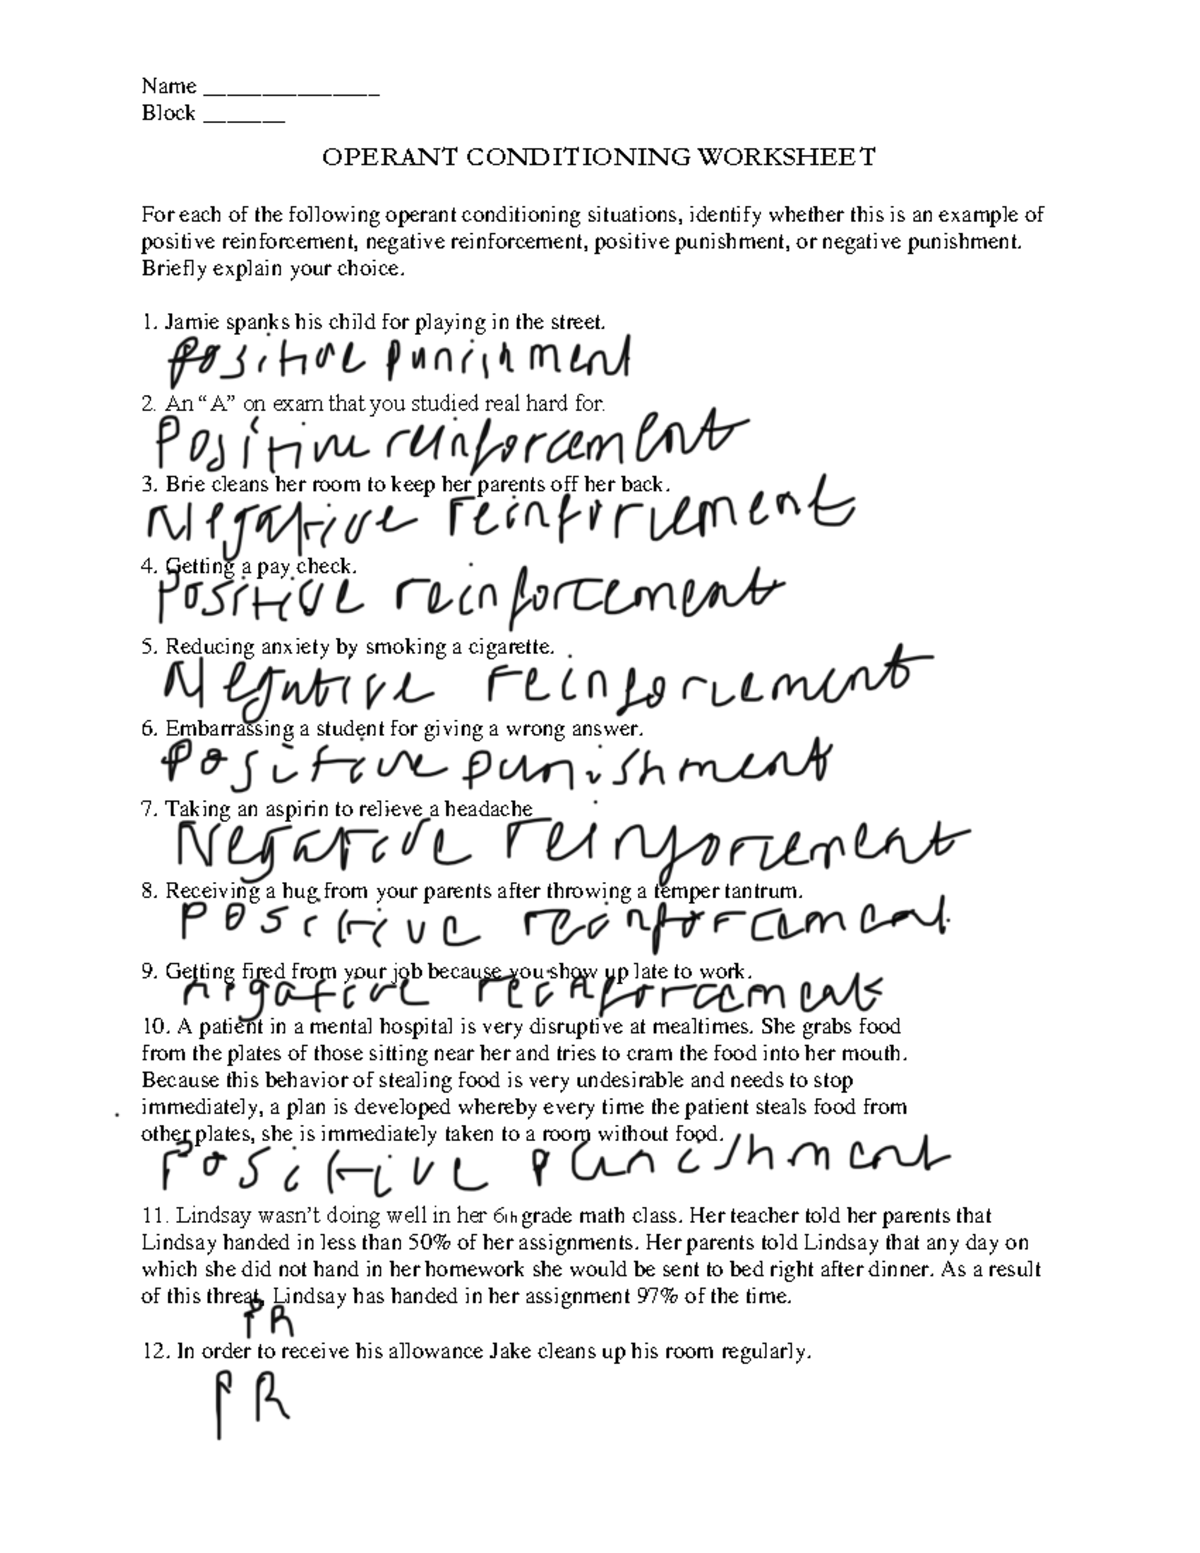 Name _______________
Block _______
OPERANT CONDITIONING WORKSHEET
For each of the following operant conditioning situations, identify whether this is an example of
positive reinforcement, negative reinforcement, positive punishment, or negative punishment.
Briefly explain your choice.
1. Jamie spanks his child for playing in the street.
positive punishment
2. An “A” on exam that you studied real hard for.
Positive reinforcement
3. Brie cleans her room to keep her parents off her back.
Negative reinforcement
4. Getting a pay check.
Positive reinforcement
5. Reducing anxiety by smoking a cigarette.
Negative reinforcement
6. Embarrassing a student for giving a wrong answer.
Positive punishment
7. Taking an aspirin to relieve a headache
Negative reinforcement
8. Receiving a hug from your parents after throwing a temper tantrum.
Positive reinforcement
9. Getting fired from your job because you show up late to work.
negative reinforcement
10. A patient in a mental hospital is very disruptive at mealtimes. She grabs food
from the plates of those sitting near her and tries to cram the food into her mouth.
Because this behavior of stealing food is very undesirable and needs to stop
immediately, a plan is developed whereby every time the patient steals food from
other plates, she is immediately taken to a room without food.
Positive punishment
11. Lindsay wasn’t doing well in her 6th grade math class. Her teacher told her parents that
Lindsay handed in less than 50% of her assignments. Her parents told Lindsay that any day on
which she did not hand in her homework she would be sent to bed right after dinner. As a result
of this threat, Lindsay has handed in her assignment 97% of the time.
PR
12. In order to receive his allowance Jake cleans up his room regularly.
PR